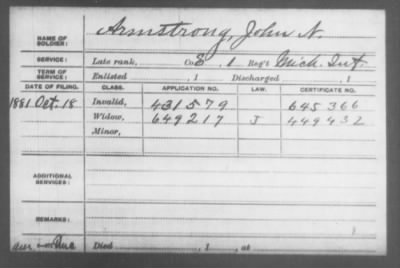 NAME OF SOLDIER: Armstrong, John N.
SERVICE: Late rank, Co. E, 1 Reg't Mich. Inf.
TERM OF SERVICE: Enlisted , 1 Discharged , 1
DATE OF FILING. CLASS. APPLICATION NO. LAW. CERTIFICATE NO.
1881 Oct. 18 Invalid, 431579 645366
Widow, 649217 J 449432
Minor,
ADDITIONAL SERVICES:
REMARKS:
Died , 1 , at